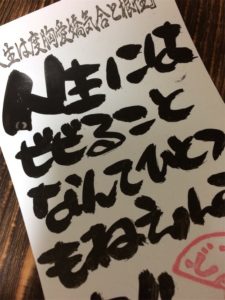 人生は度胸愛嬌気合と根性
人生には
びびること
なんてひとつ
もねえん